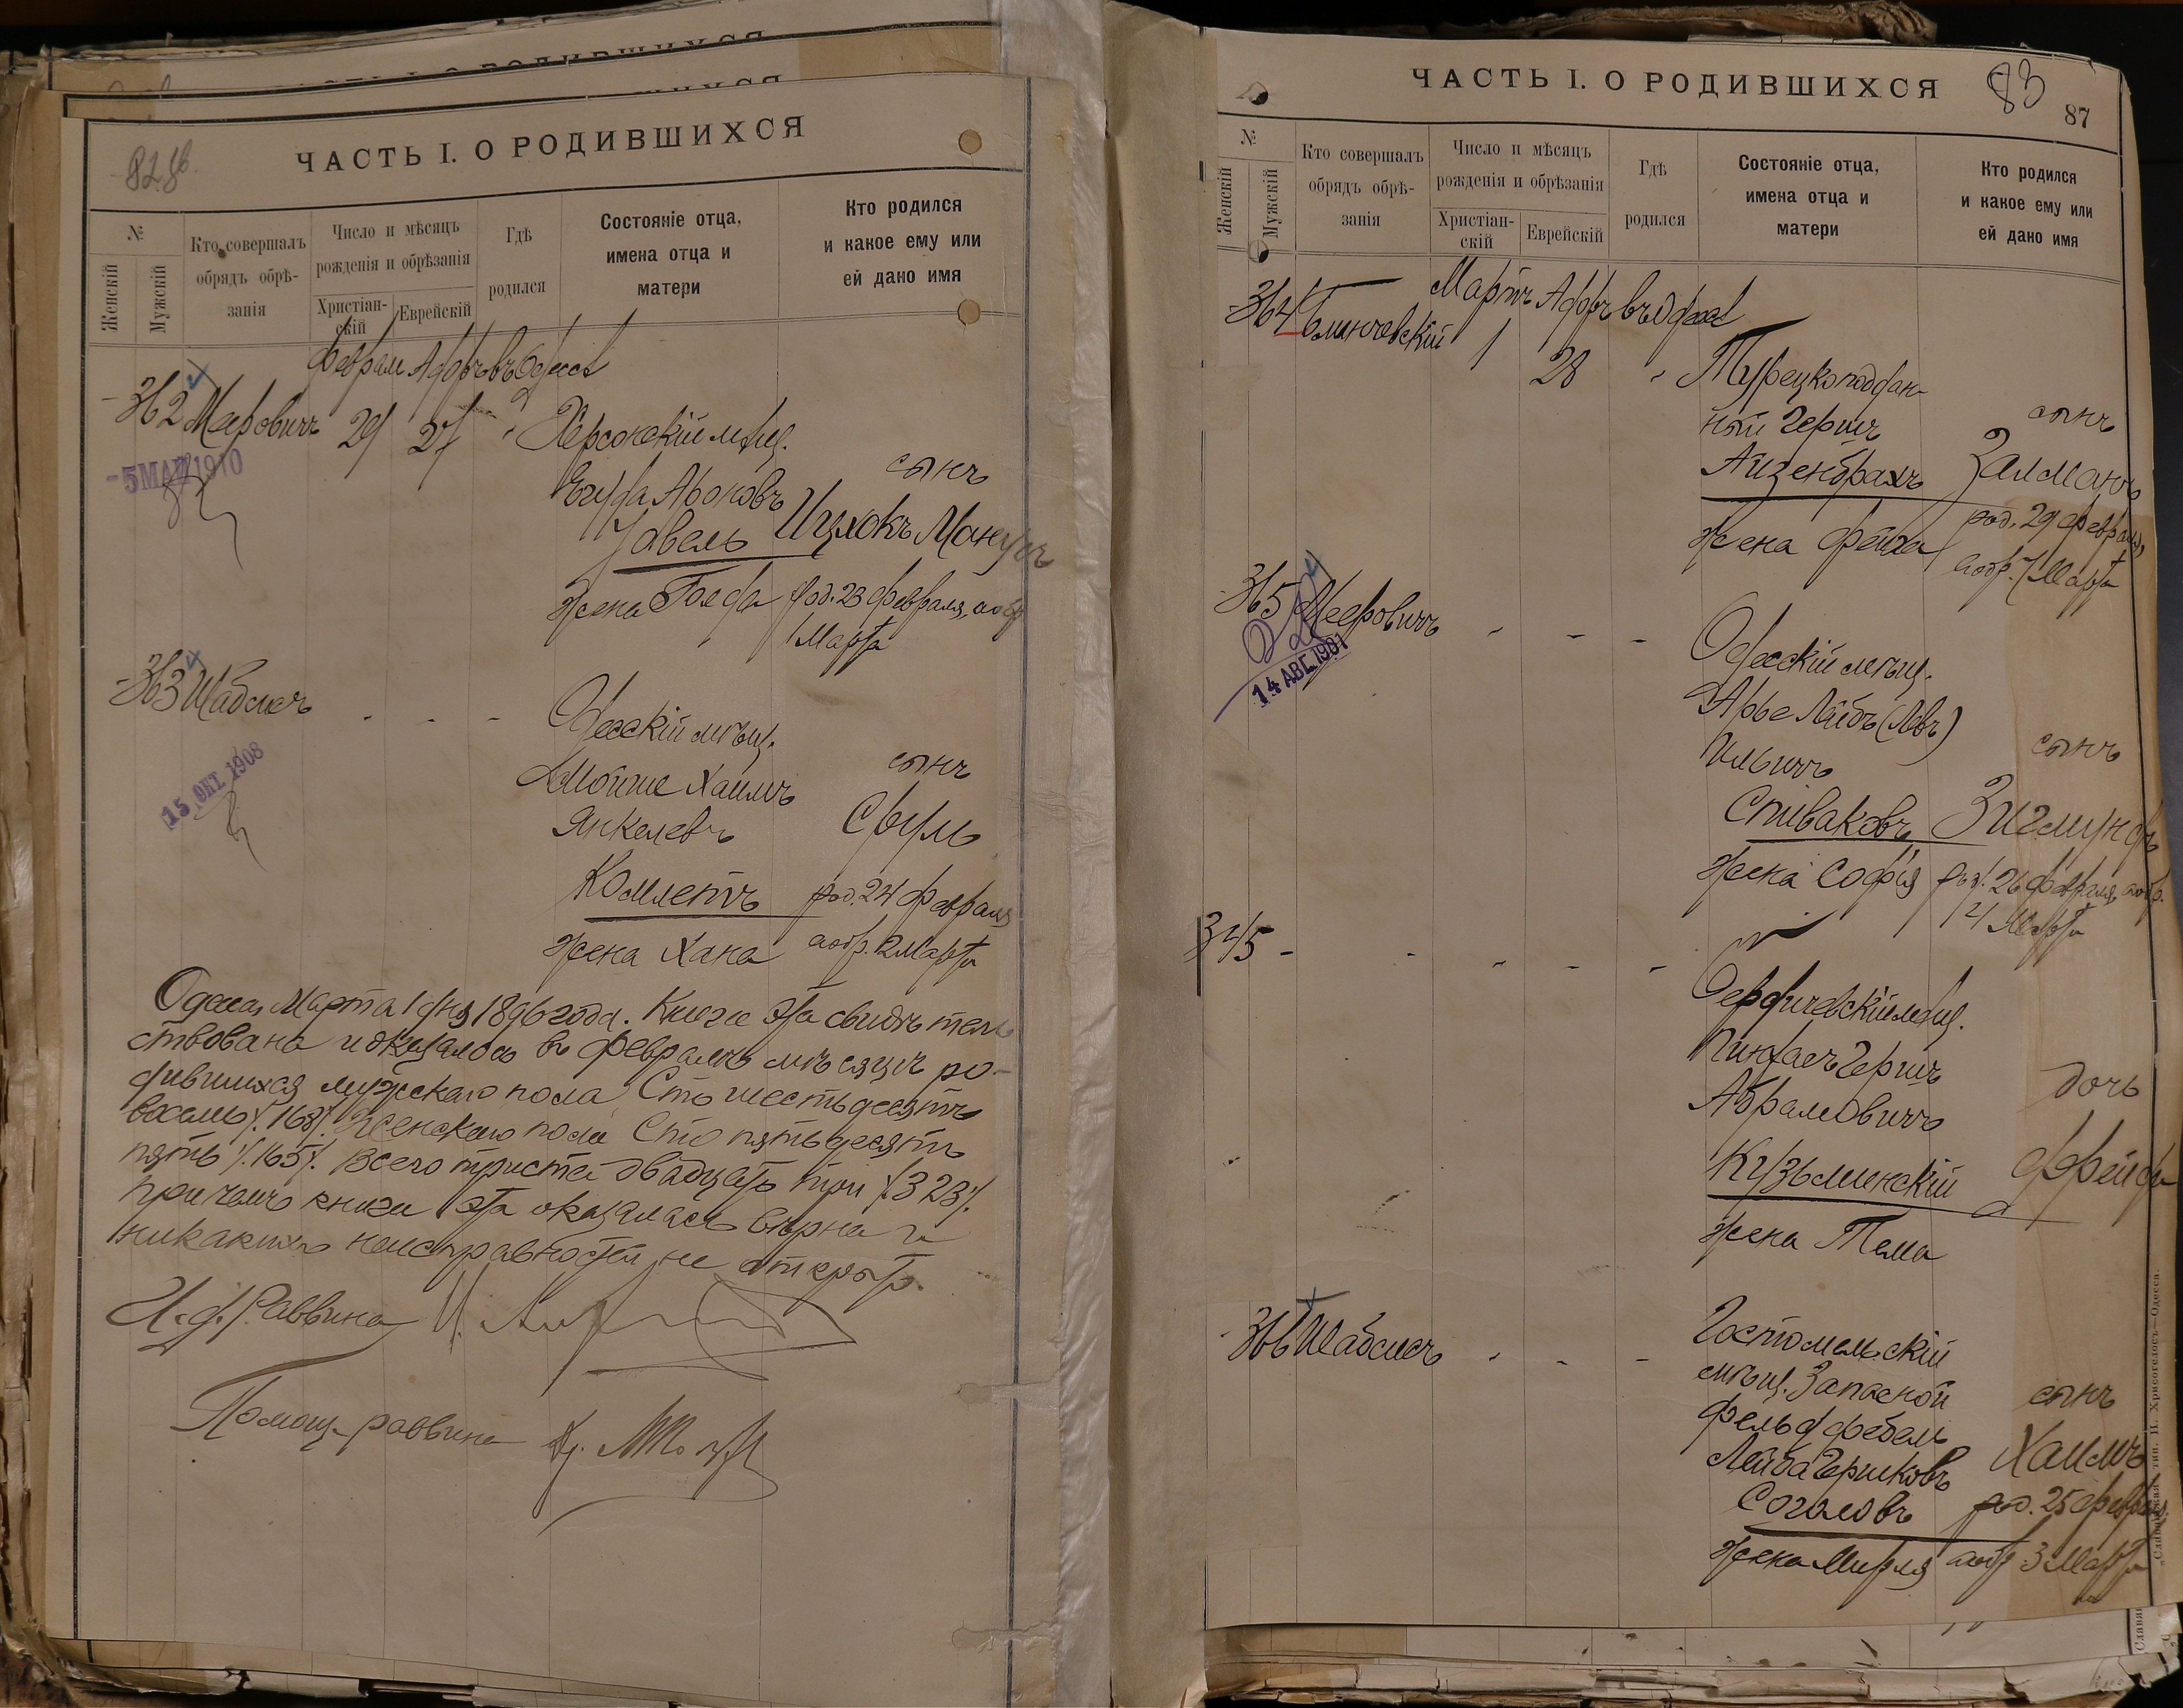 ЧАСТЬ I. О РОДИВШИХСЯ
82 об.
№
Женскій
Мужскій
Кто совершалъ
обрядъ обрѣ-
занія
Число и мѣсяцъ
рожденія и обрѣзанія
Христіан-
скій
Еврейскій
Гдѣ
родился
Состояніе отца,
имена отца и
матери
Кто родился
и какое ему или
ей дано имя
Февраля Адаръ въ Одессѣ
362 Меровичъ 29 27 Херсонскій мѣщ.
-5 МАЯ 1910
сынъ
Егуда Ароновъ
Ицхокъ
жена Голда род. 23 февраля, а обр
1 Марта
363 Шабсисъ
15 ОКТ. 1908
Одесскій мѣщ.
Мойше Хаимъ
сынъ
Янкелевъ
Сруль
Комлетъ
род. 24 февраля
жена Хана
а обр. 2 Марта
Одесса, Марта 1 дня 1896 года. Книга эта свидѣтель
ствована и оказалось въ февралѣ мѣсяцѣ ро-
дившихся мужскаго пола Сто шестьдесятъ
восемь ./.168/. Женскаго пола Сто пятьдесятъ
пять ./.155/. Всего триста двадцать три /.323/.
при чемъ книга эта оказалась вѣрна и
никакихъ неисправностей не открыто.
И. д. Раввина
Помощ. раввина
ЧАСТЬ I. О РОДИВШИХСЯ
83
87
№
Женскій
Мужскій
Кто совершалъ
обрядъ обрѣ-
занія
Число и мѣсяцъ
рожденія и обрѣзанія
Христіан-
скій
Еврейскій
Гдѣ
родился
Состояніе отца,
имена отца и
матери
Кто родился
и какое ему или
ей дано имя
Мартъ Адаръ въ Одессѣ
364 Блинчевскій 1 28
Турецкоподдан-
ный Гершъ
сынъ
Айзенбрахъ
Залманъ
жена Фейга
род. 29 февраля,
а обр. 7 Марта
365 Меровичъ
14 АВГ. 1901
Одесскій мѣщ.
Арье Лейбъ (Левъ)
сынъ
Спиваковъ
Зигмундъ
жена Софія
род. 26 февраля, а обр.
4 Марта
345
Бердичевскій мѣщ.
Пинхасъ Гершъ
Абрамовичъ
дочь
Кузьминскій
Фрейда
жена Тема
366 Шабсисъ
Гостомельскій
мѣщ. Запасной
фельдфебель
сынъ
Лейба Гершковъ
Хаимъ
Соголовъ
род. 25 февраля
жена Мирля
а обр 3 Марта
тип. Н. Хрисогелосъ—Одесса.